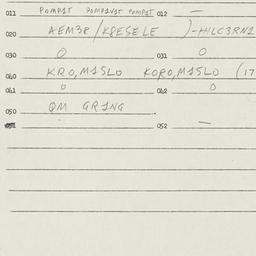 011 POMPIT POMPINIT POMPIT 012 —
020 AEM3R/KPESELE )-HILC3RN1
030 0 031 0
040 KRO,M1SLO KORO,M1SLO (17
041 0 042 0
050 QM GR1NG
051 052 —